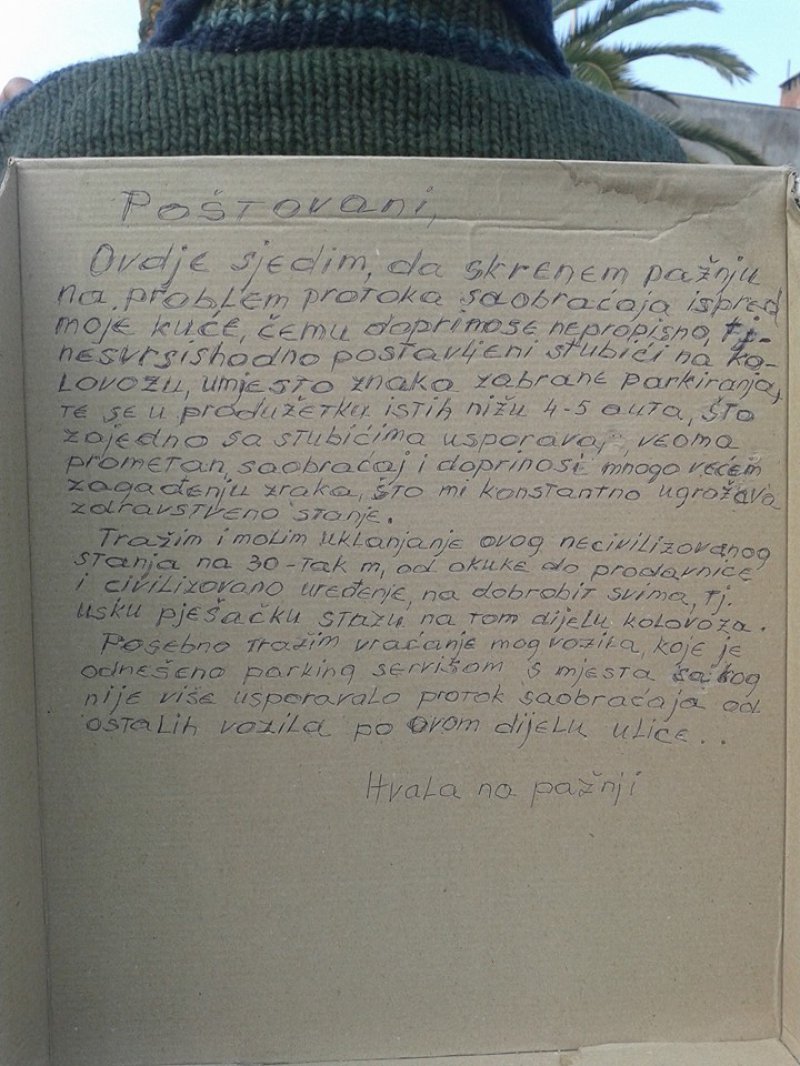 Poštovani,
Ovdje sjedim, da skrenem pažnju
na problem protoka saobraćaja ispred
moje kuće, čemu doprinose nepropisno, tj.
nesvrsishodno postavljeni stubići na ko-
lovozu, umjesto znaka zabrane parkiranja,
te se u produžetku istih nižu 4-5 auta, što
zajedno sa stubićima usporava, veoma
prometan, saobraćaj i doprinosi mnogo većem
zagađenju zraka, što mi konstantno ugrožava
zdravstveno stanje.
Tražim i molim uklanjanje ovog necivilizovanog
stanja na 30-tak m, od okuke do prodavnice
i civilizovano uređenje, na dobrobit svima, tj.
usku pješačku stazu na tom dijelu kolovoza.
Posebno tražim vraćanje mog vozila, koje je
odnešeno parking servisom s mjesta sa kog
nije više usporavalo protok saobraćaja od
ostalih vozila po ovom dijelu ulice..
Hvala na pažnji